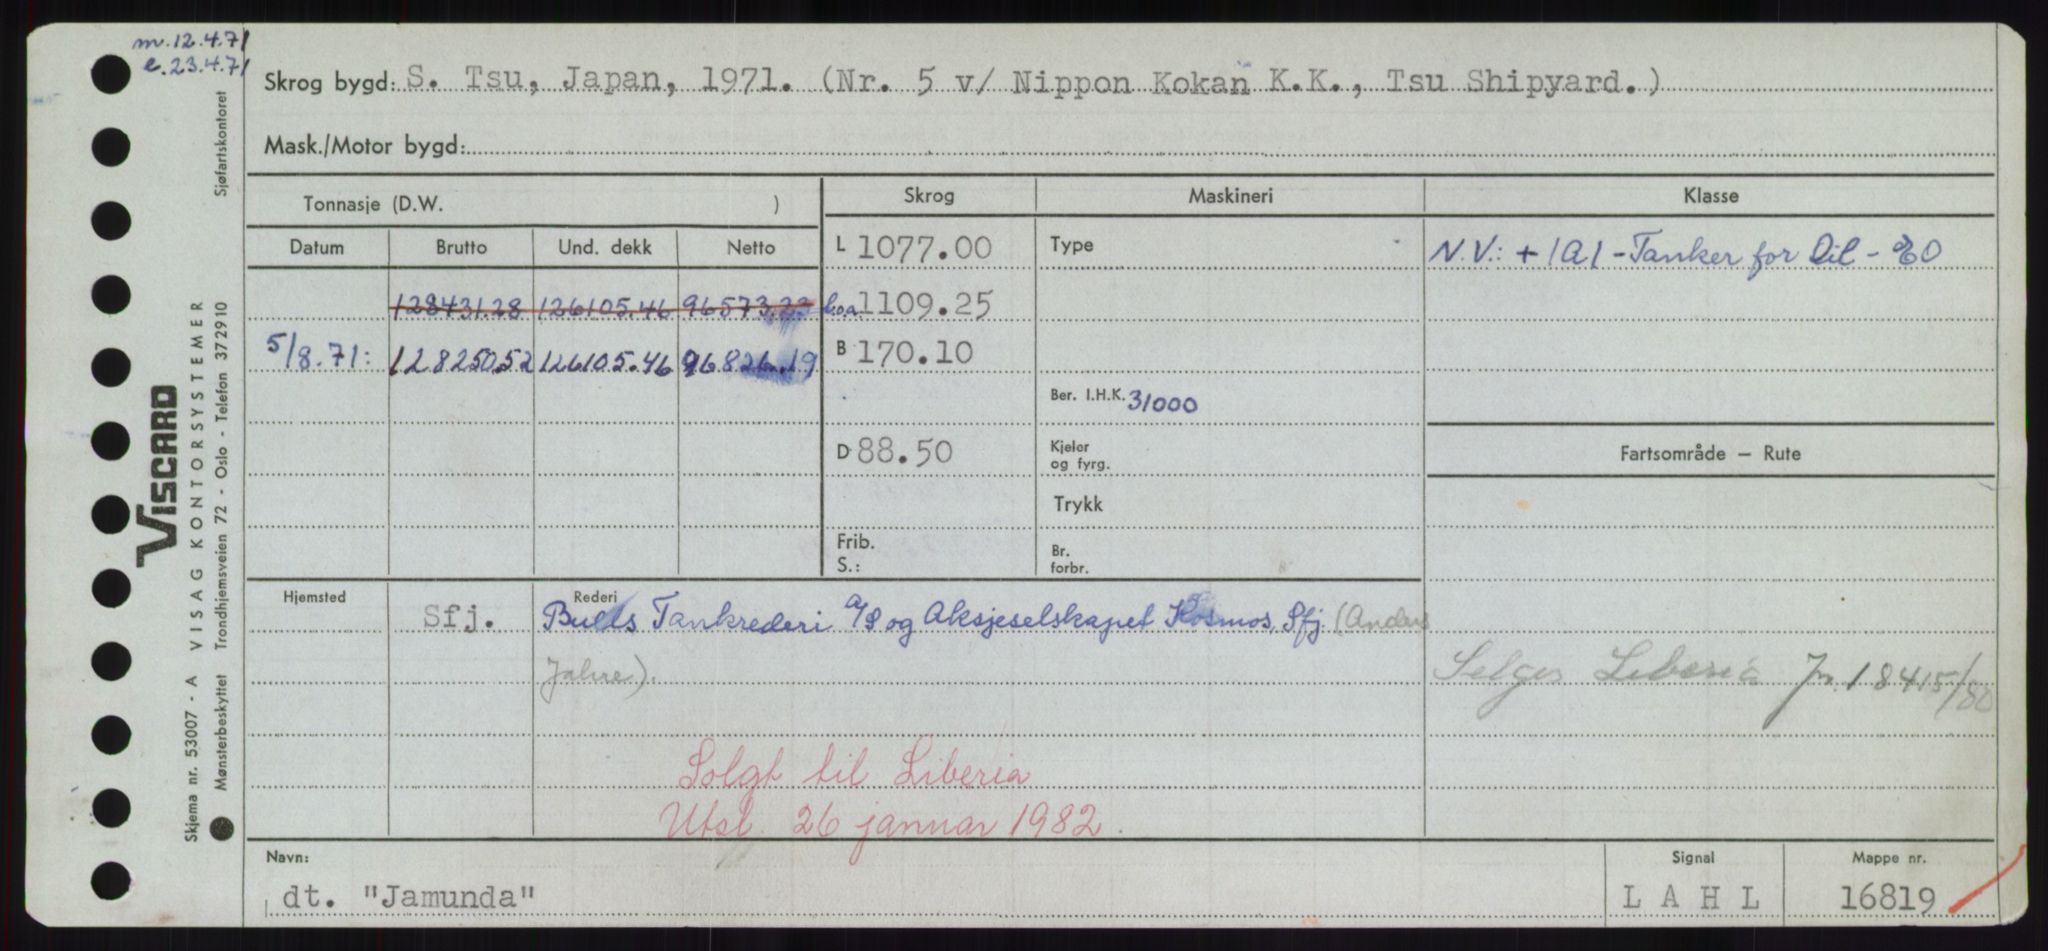 m. 12.4.71
e. 23.4.71
Skrog bygd: S. Tsu, Japan, 1971. (Nr. 5 v/ Nippon Kokan K.K., Tsu Shipyard.)
Mask./Motor bygd:
Tonnasje (D.W. )
Skrog
Maskineri
Klasse
Datum Brutto Und. dekk Netto
L 1077.00
Type
N.V.: + 1A1 - Tanker for Oil - EO
128431.28 126105.46 96573.23
l.o.a. 1109.25
5/8.71: 128250.52 126105.46 96826.19
B 170.10
Ber. I.H.K. 31000
D 88.50
Kjeler
og fyrg.
Fartsområde – Rute
Trykk
Frib.
S.:
Br.
forbr.
Hjemsted Sfj.
Rederi
Bulls Tankrederi A/S og Aksjeselskapet Kosmos, Sfj. (Anders
Jahre).
Selges Liberia Jn 18415/80
Solgt til Liberia
Utsl. 26 januar 1982.
Navn:
dt. "Jamunda"
Signal
LAHL
Mappe nr.
16819
Skjema nr. 53007 - A VISAG KONTORSYSTEMER
Mønsterbeskyttet Trondhjemsveien 72 - Oslo - Telefon 372910 Sjøfartskontoret
VISCARD